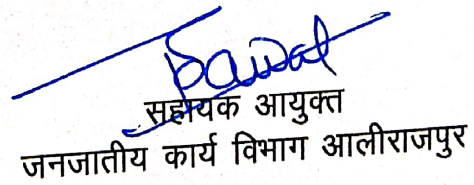 सहायक आयुक्त
जनजातीय कार्य विभाग आलीराजपुर